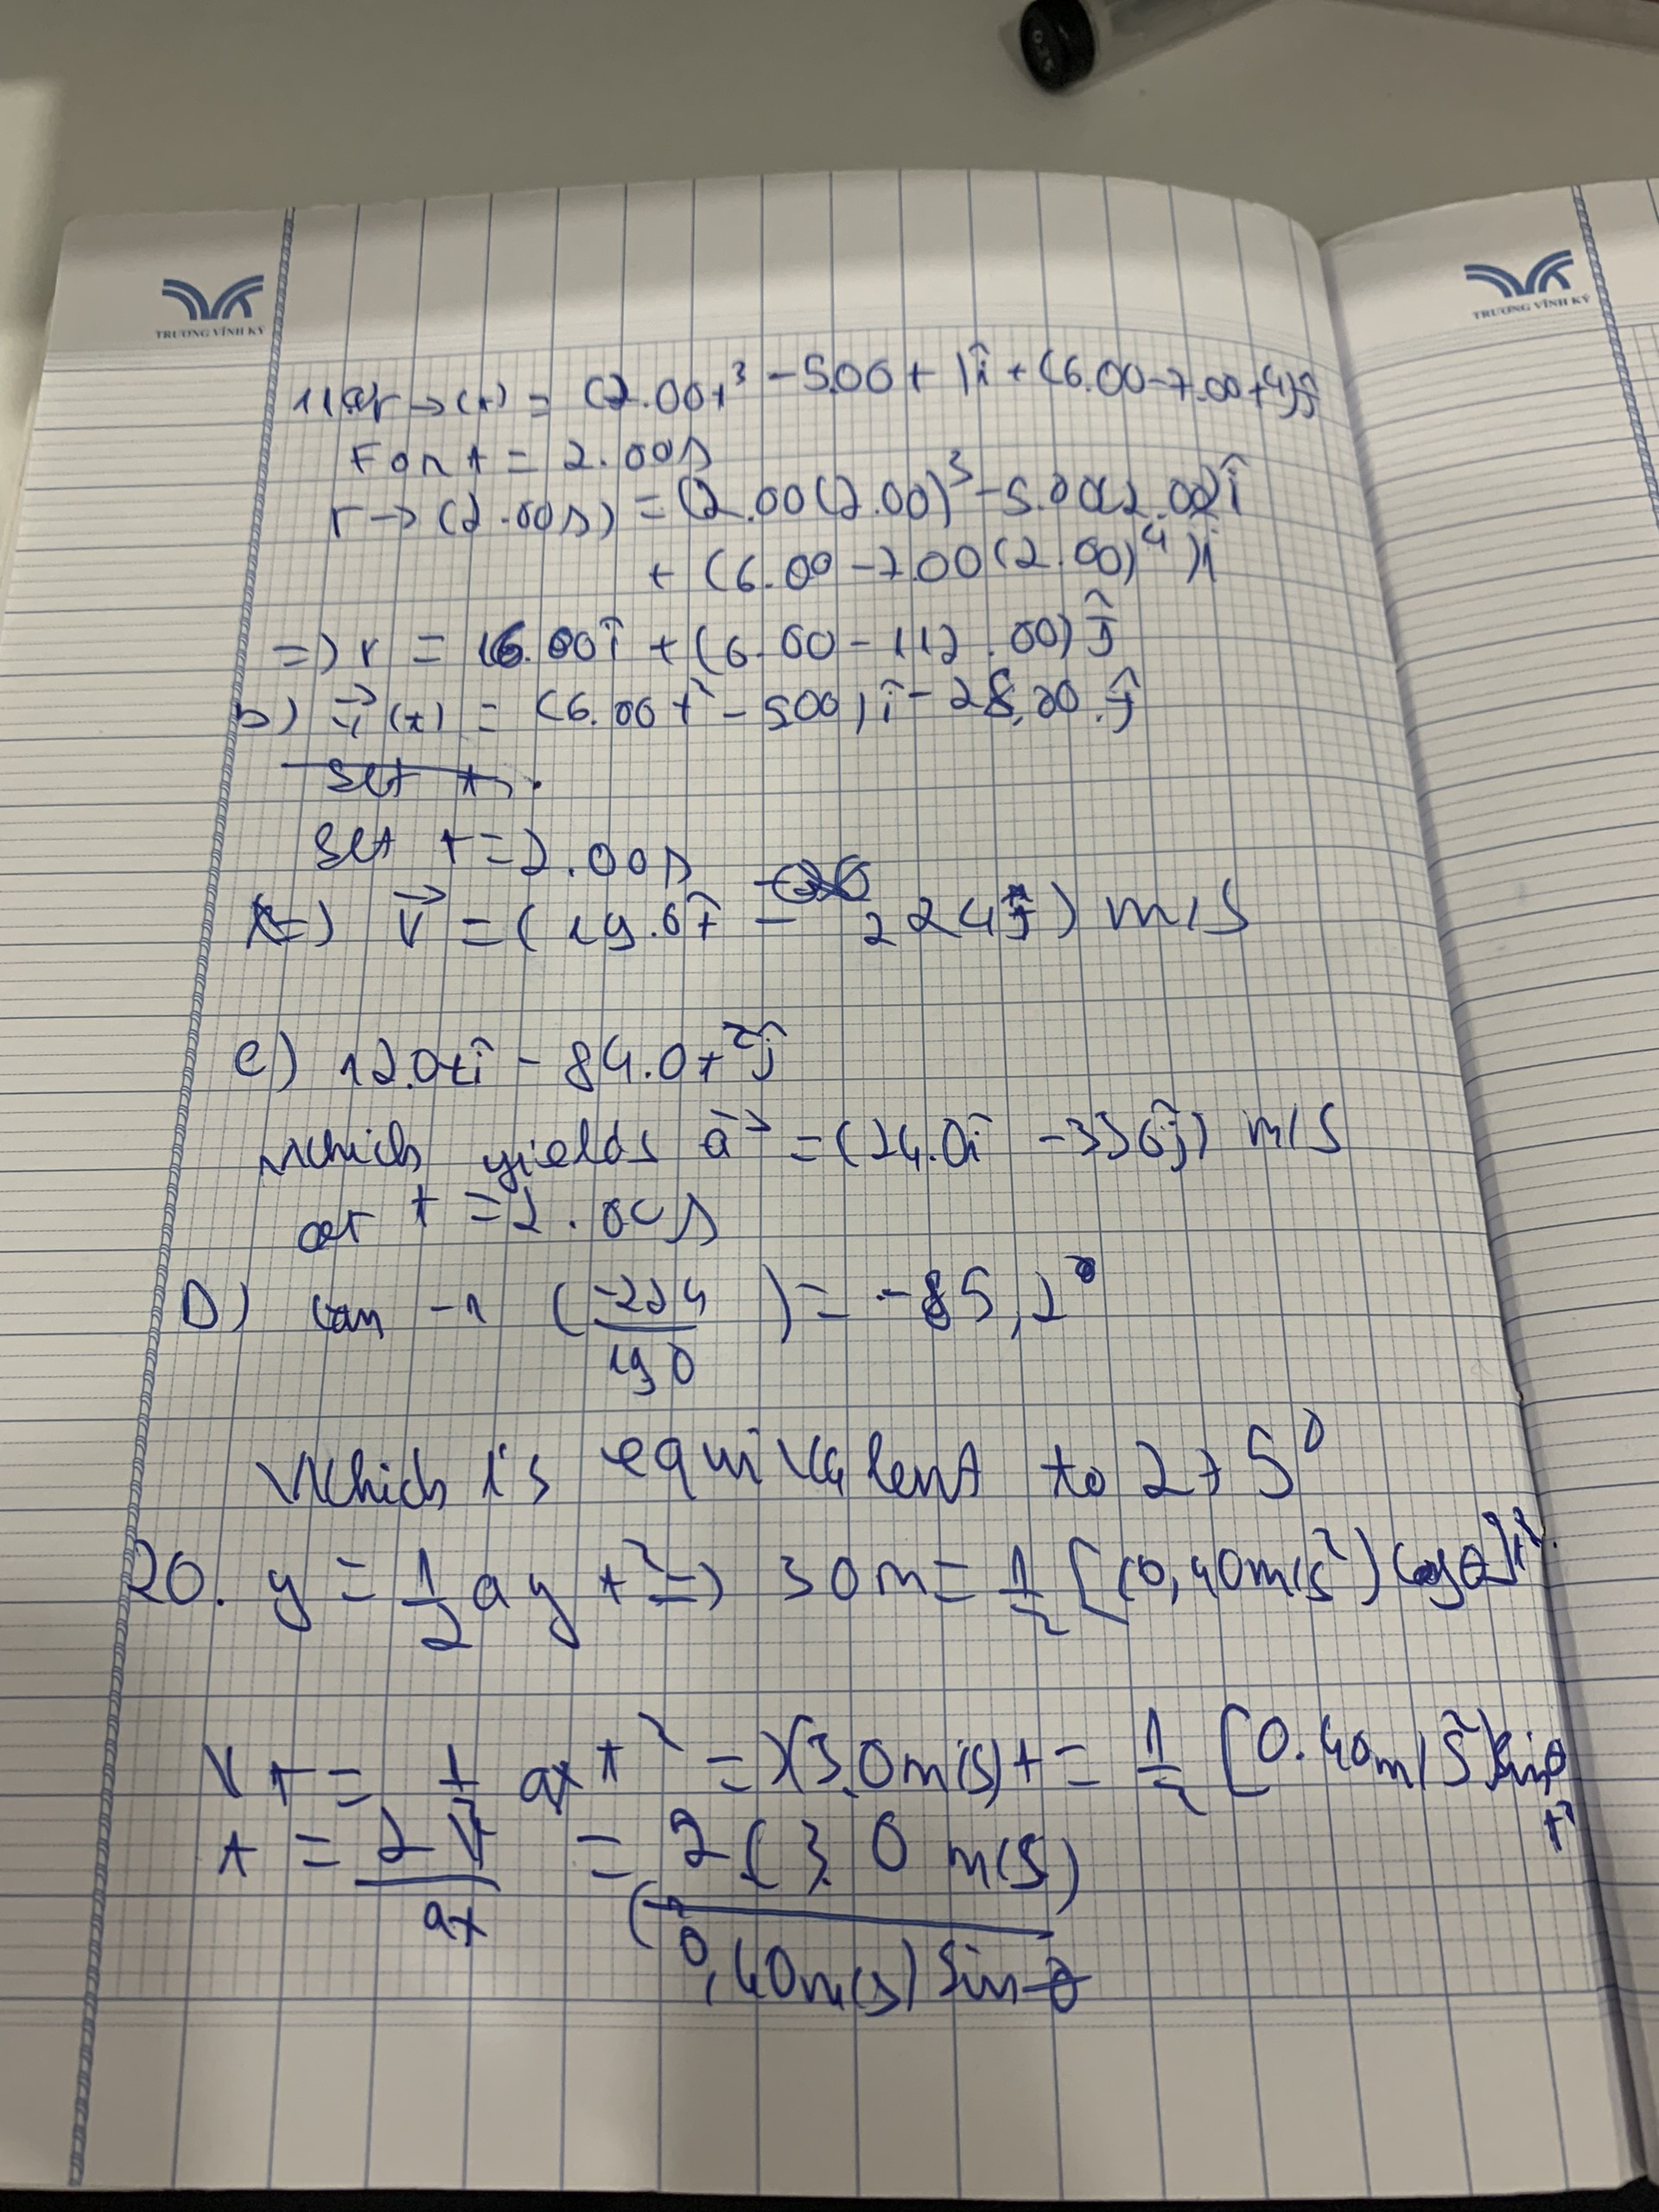 TRƯƠNG VĨNH KÝ
TRƯƠNG VĨNH KÝ
11 a) r→(t) = (2.00t³ - 5.00t)î + (6.00-7.00t⁴)ĵ
For t = 2.00s
r→(2.00s) = (2.00(2.00)³-5.00(2.00)î
+ (6.00-7.00(2.00)⁴)j
=) r = 6.00î + (6.00-112.00)ĵ
b) (t) = (6.00t² - 500)î - 28,00 ĵ
set t
set t=2.00s
=) v→ = (19.0î - 224ĵ) m/s
c) 12.0tî - 84.0t²ĵ
which yields a→ = (24.0î - 336ĵ) m/s
at t = 2.00s
D) tan -1 (-224/190) = -85,2°
Which is equivalent to 275°
20. y = 1/2 ay t² =) 30m = 1/2 [(0,40m/s²) cosθ]t²
Vt = 1/2 axt² =) (3.0m/s)t = 1/2 [0.40m/s²)sinθ
t²
t = 2V/ax = 2(3.0 m/s)/(0,40m/s) sinθ